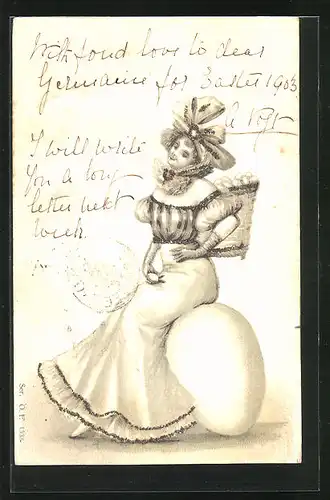 With fond love to dear
Germaine for Easter 1903
I will write
you a long
letter next
week.